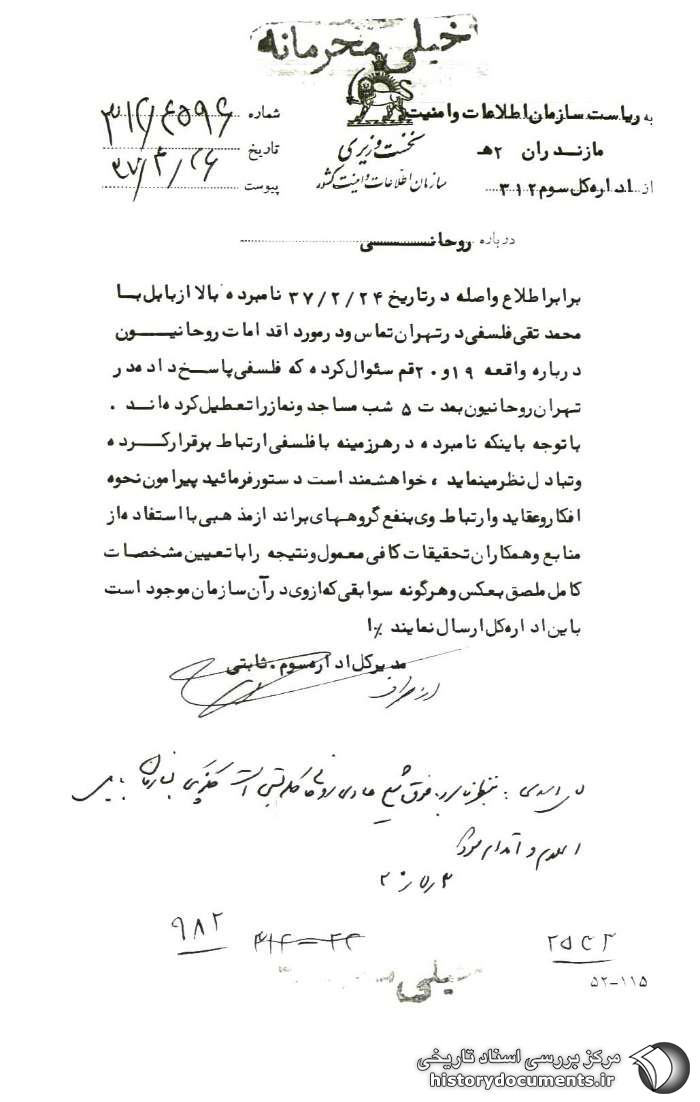 خیلی محرمانه
به ریاست سازمان اطلاعات وامنیت
مازندران ۲هـ
از اداره کل سوم ۳۱۲
نخست وزیری
سازمان اطلاعات و امنیت کشور
شماره
تاریخ
پیوست
درباره روحانی
برابر اطلاع واصله در تاریخ ۳۷/۲/۲۴ نامبرده بالا از بابل با
محمد تقی فلسفی در تهران تماس و در مورد اقدامات روحانیون
درباره واقعه ۱۹ و ۲۰ قم سئوال کرده که فلسفی پاسخ داده در
تهران روحانیون بمدت ۵ شب مساجد و نماز را تعطیل کرده اند .
با توجه باینکه نامبرده در هر زمینه با فلسفی ارتباط برقرار کرده
و تبادل نظر مینماید ، خواهشمند است دستور فرمائید پیرامون نحوه
افکار و عقاید و ارتباط وی بنفع گروههای برانداز مذهبی با استفاده از
منابع و همکاران تحقیقات کافی معمول و نتیجه را با تعیین مشخصات
کامل ملصق بعکس و هرگونه سوابقی که از وی در آن سازمان موجود است
باین اداره کل ارسال نمایند ٪ا
مدیرکل اداره سوم . ثابتی
از طرف
فوق شیخ هادی روحانی
اعلام و اقدام شود
۹۸۲
۲۵۴۳
۵۲-۱۱۵
خیلی
مرکز بررسی اسناد تاریخی
historydocuments.ir